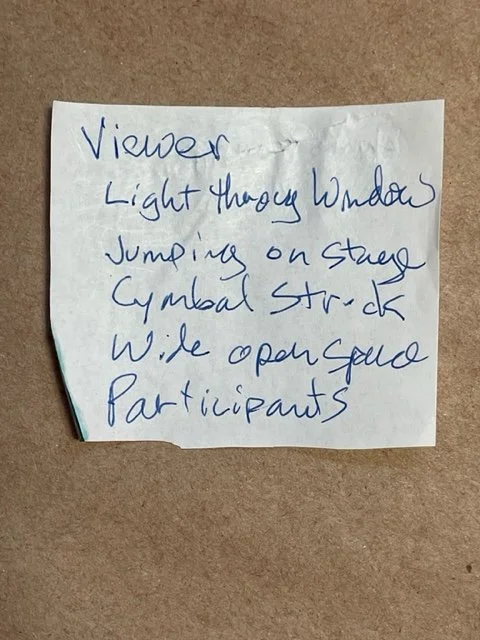 Viewer
Light throug Window
Jumping on stage
Cymbal Struck
Wide open space
Participants